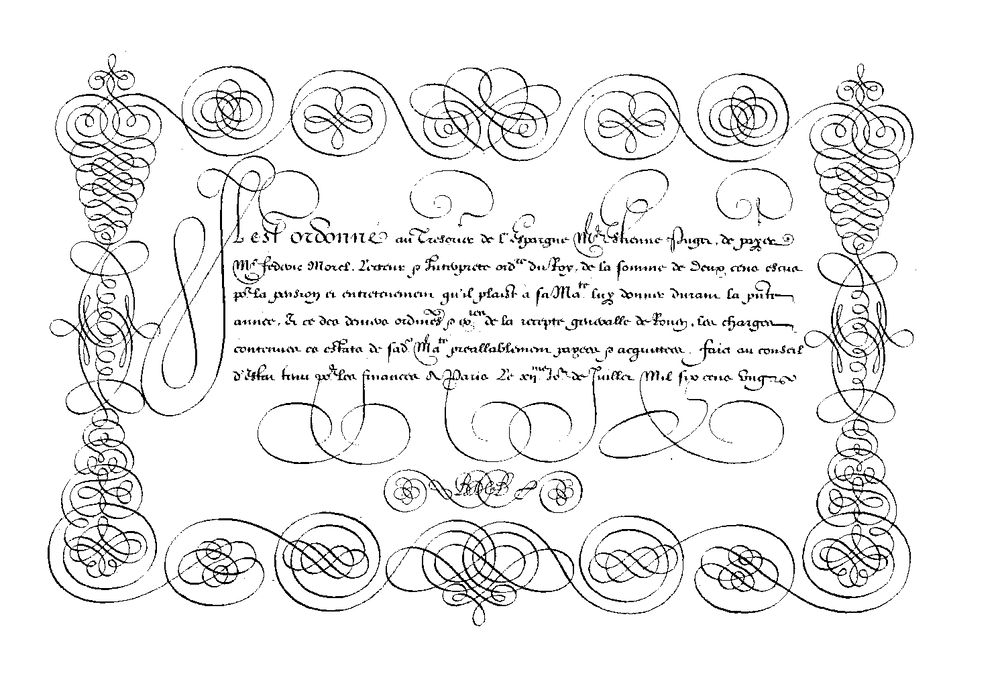 Il est ordonné au Tresorier de l'Espargne Mᵉ Estienne Puget, de payer
Mᵉ federic Morel, Lecteur & Interprete ordʳᵉ du Roy, de la somme de deux cens escus
poʳ la pension et entretenement qu'il plaist a sa Maᵗᵉ luy donner durant la pñte
année, Et ce des deniers ordinʳᵉˢ de la recepte generalle de Rouen, les charges
contenues es estats de sadᵗᵉ Maᵗᵉ preallablement payees & acquittees. faict au conseil
d'estat tenu poʳ les finances A Paris Le xiiᵐᵉ Joʳ de Juillet Mil six cens